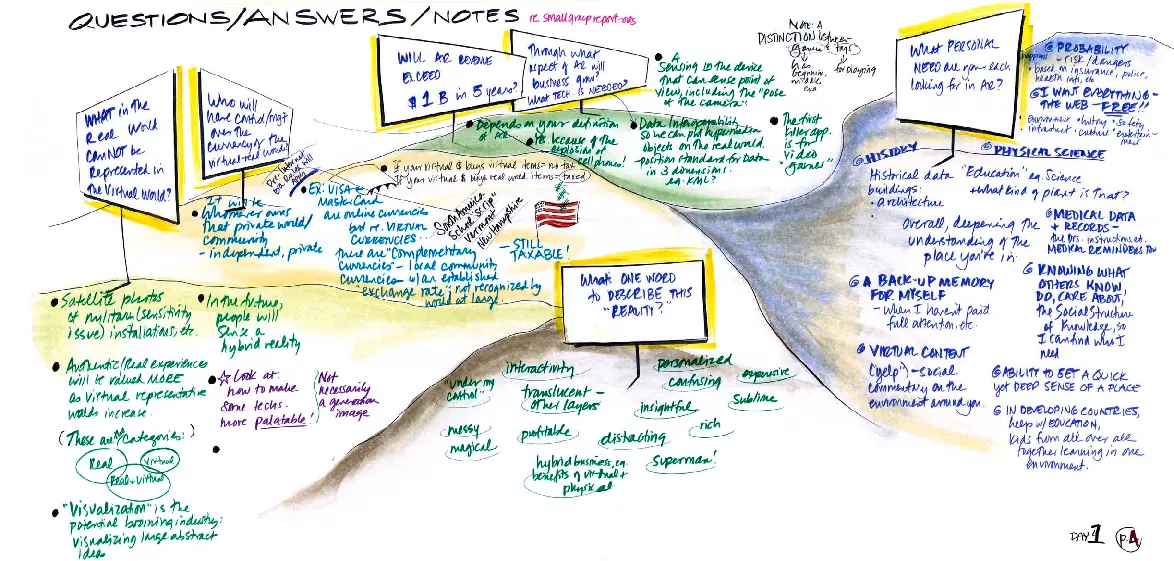 QUESTIONS/ANSWERS/NOTES
re. small group report-outs
WHAT in the
Real World
CANNOT be
Represented in
the Virtual World?
Who will
have control
over the
currency of the
virtual-real world?
WILL AR REVENUE
EXCEED
$1 B in 5 years?
Through what
aspect of AR will
business grow?
What TECH. IS NEEDED?
Note: A
DISTINCTION between
games & toys
has
beginning,
middle,
end
for playing
A
Sensing in the device
that can sense point of
view, including the "pose
of the camera"
What PERSONAL
NEED are you each
looking for in AR?
PROBABILITY
- risk/dangers
based on insurance, police,
health info, etc
I WANT EVERYTHING -
THE WEB - FREE!!
Depends on your definition
of AR
Yes. because of the
explosion of
cellphone!
Data Interoperability
so we can put hypermedia
objects on the real world.
- position standard for data
in 3 dimensions.
eg. KML?
The first
killer app.
is for
video
"games"
If your virtual $ buys virtual items = no tax
If your virtual $ buys real world items = taxed
- STILL
TAXABLE!
It will be
Whomever owns
that private world/
community
- independent, private
Ex: VISA
MasterCard
are online currencies
but re: VIRTUAL
CURRENCIES...
There are "Complementary
Currencies" - local community
currencies w/an established
exchange rate; not recognized by
world at large.
South America
School "scrip"
Vermont
New Hampshire
What ONE WORD
to DESCRIBE THIS
"REALITY?"
HISTORY
Historical data
buildings
- architecture
PHYSICAL SCIENCE
'Education' eg. Science
- what kind of plant is that?
Overall, deepening the
understanding of the
place you're in.
MEDICAL DATA
+ RECORDS -
the Drs. instructions, et.
MEDICAL REMINDERS
A BACK-UP MEMORY
FOR MYSELF
- when I haven't paid
full attention, etc.
KNOWING WHAT
OTHERS KNOW
DO, CARE ABOUT,
the Social Structure
of Knowledge, so
I can find who I
need
VIRTUAL CONTENT
(yelp) - social
commentary on the
environment around you.
ABILITY TO GET A QUICK
yet DEEP SENSE OF A PLACE
IN DEVELOPING COUNTRIES,
help w/EDUCATION,
kids from all over all
together learning in one
environment.
Satellite photos
of military (sensitivity
issue) installations, etc.
In the future,
people will
Sense a
hybrid reality
Authentic/Real experiences
will be valued MORE
as Virtual representative
worlds increase.
Look at
how to make
some techs.
more palatable!
Not
necessarily
a generation
image
(These are the Categories:)
Real
Virtual
Real + Virtual
"Visualization" is the
potential booming industry:
visualizing large abstract
ideas
interactivity
personalized
confusing
expensive
"under my
control"
translucent -
other layers
insightful
sublime
messy
magical
profitable
distracting
rich
hybrid business, eg.
benefits of virtual +
physical
superman!
DAY 1
p.4